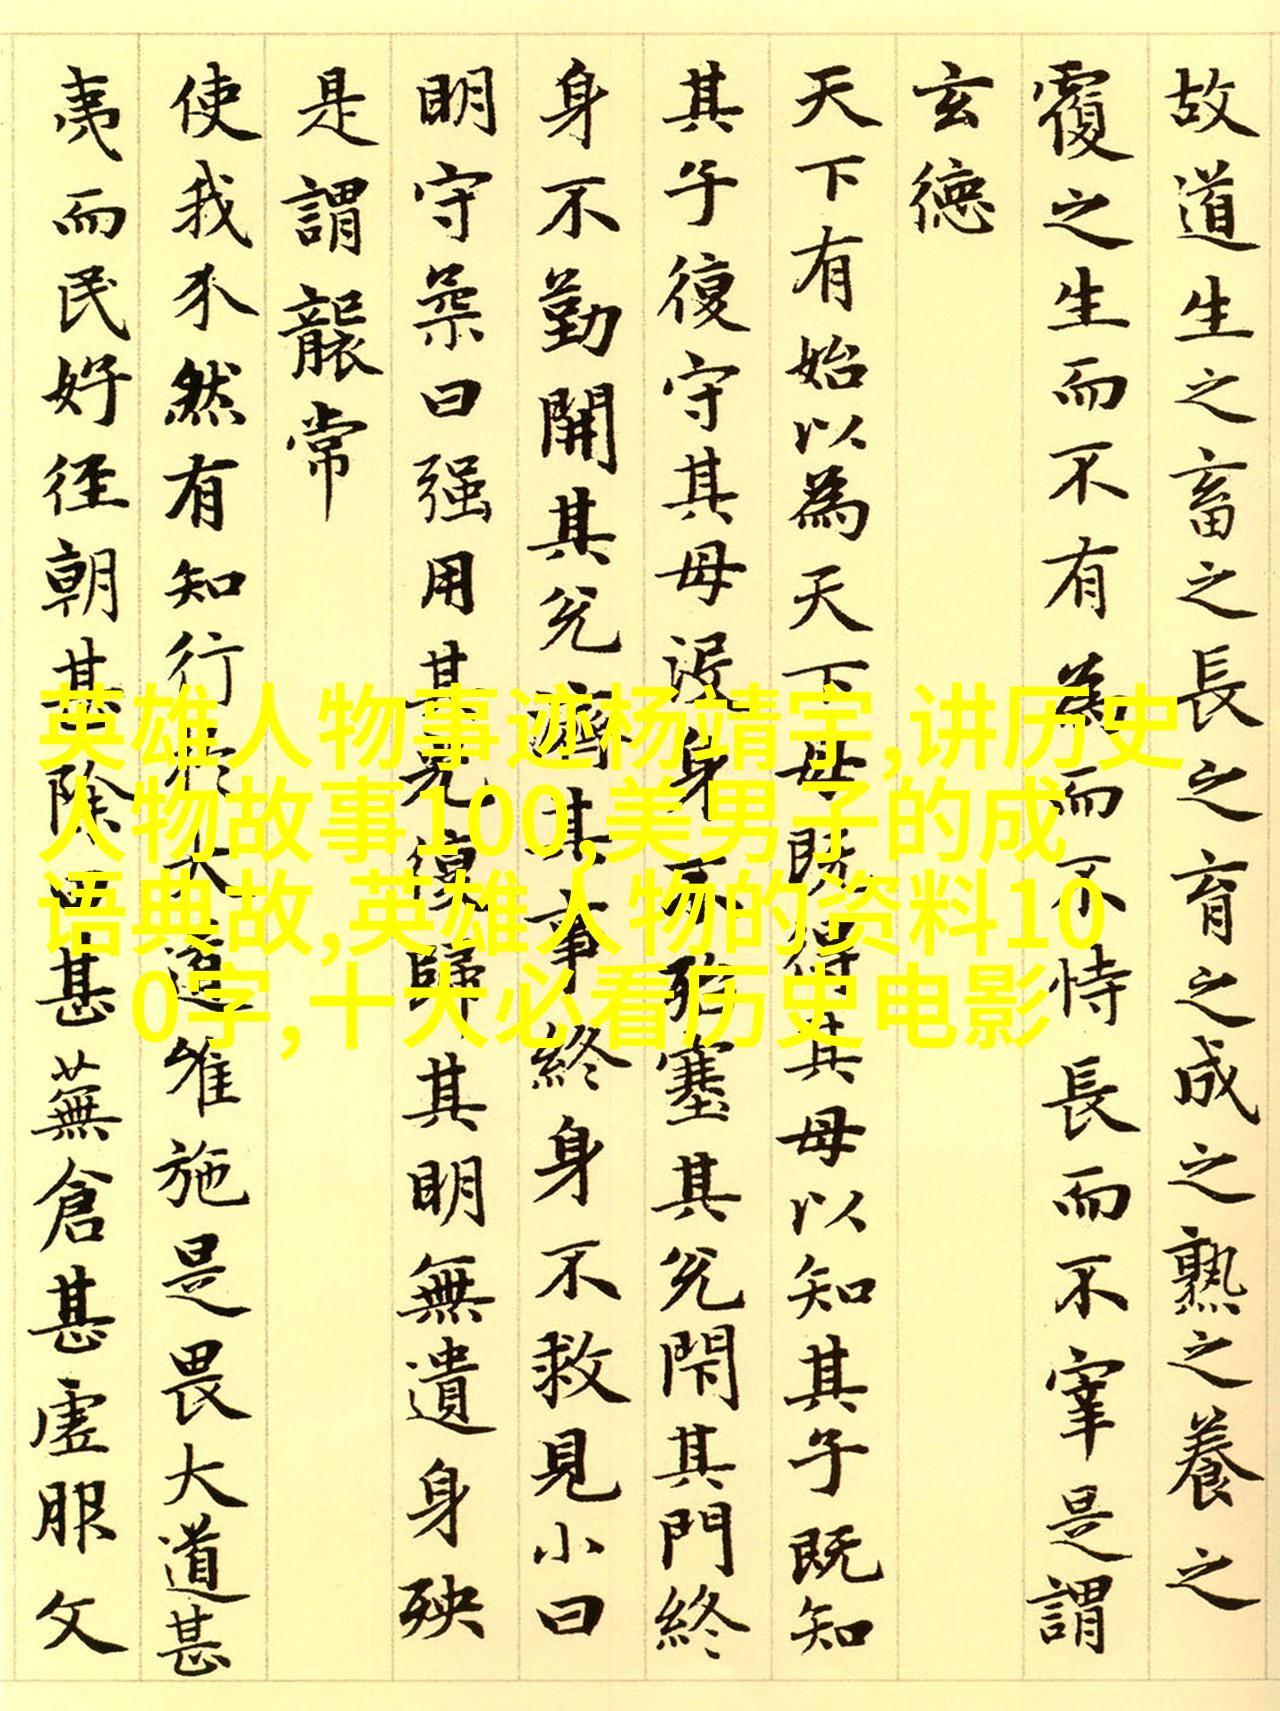 故道生之畜之長之育之成之熟之養之
覆之生而不有為而不恃長而不宰是謂
玄德
天下有始以為天下母既得其母以知其子既知
其子復守其母没身不殆塞其兑閇其門終
身不勤開其兑濟其事終身不救見小曰
明守柔曰强用其光復歸其明無遺身殃
是謂襲常
使我介然有知行於大道唯施是畏大道甚
夷而民好徑朝甚除田甚蕪倉甚虚服文
英雄人物事迹杨靖宇,讲历史
人物故事100,美男子的成
语典故,英雄人物的资料10
0字,十大必看历史电影